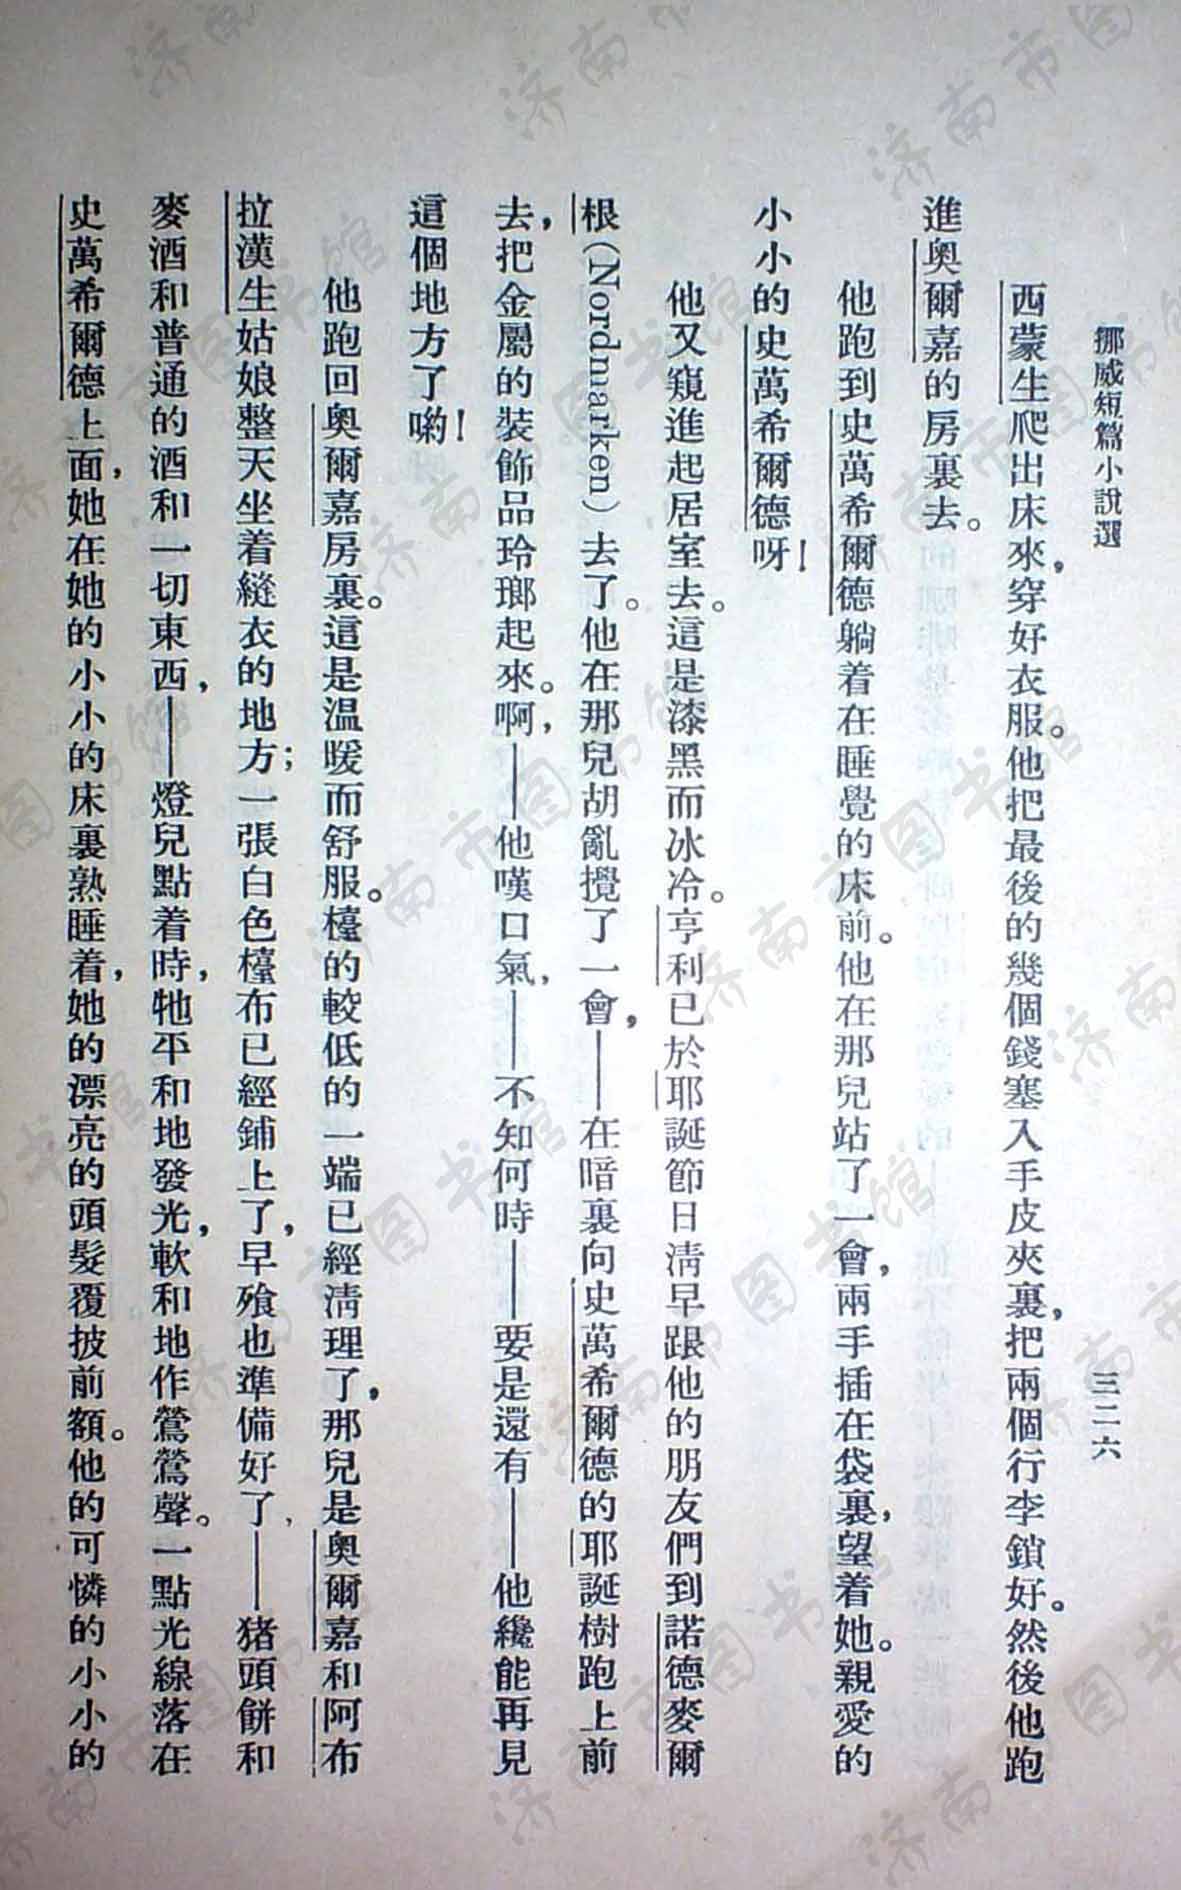 挪威短篇小說選
三二六
西蒙生爬出床來，穿好衣服。他把最後的幾個錢塞入手皮夾裏，把兩個行李鎖好。然後他跑
進奧爾嘉的房裏去。
他跑到史萬希爾德躺着在睡覺的床前。他在那兒站了一會，兩手插在袋裏，望着她。親愛的
小小的史萬希爾德呀！
他又窺進起居室去。這是漆黑而冰冷。亨利已於耶誕節日淸早跟他的朋友們到諾德麥爾
根（Nordmarken）去了。他在那兒胡亂攪了一會，——在暗裏向史萬希爾德的耶誕樹跑上前
去，把金屬的裝飾品玲瑯起來。啊，——他嘆口氣，——不知何時——要是還有——他纔能再見
這個地方了喲！
他跑回奧爾嘉房裏。這是溫暖而舒服。檯的較低的一端已經淸理了，那兒是奧爾嘉和阿布
拉漢生姑娘整天坐着縫衣的地方；一張白色檯布已經鋪上了，早飱也準備好了，——猪頭餠和
麥酒和普通的酒和一切東西，——燈兒點着時，牠平和地發光，軟和地作鶯鶯聲。一點光線落在
史萬希爾德上面，她在她的小小的床裏熟睡着，她的漂亮的頭髮覆披前額。他的可憐的小小的
济南市图书馆